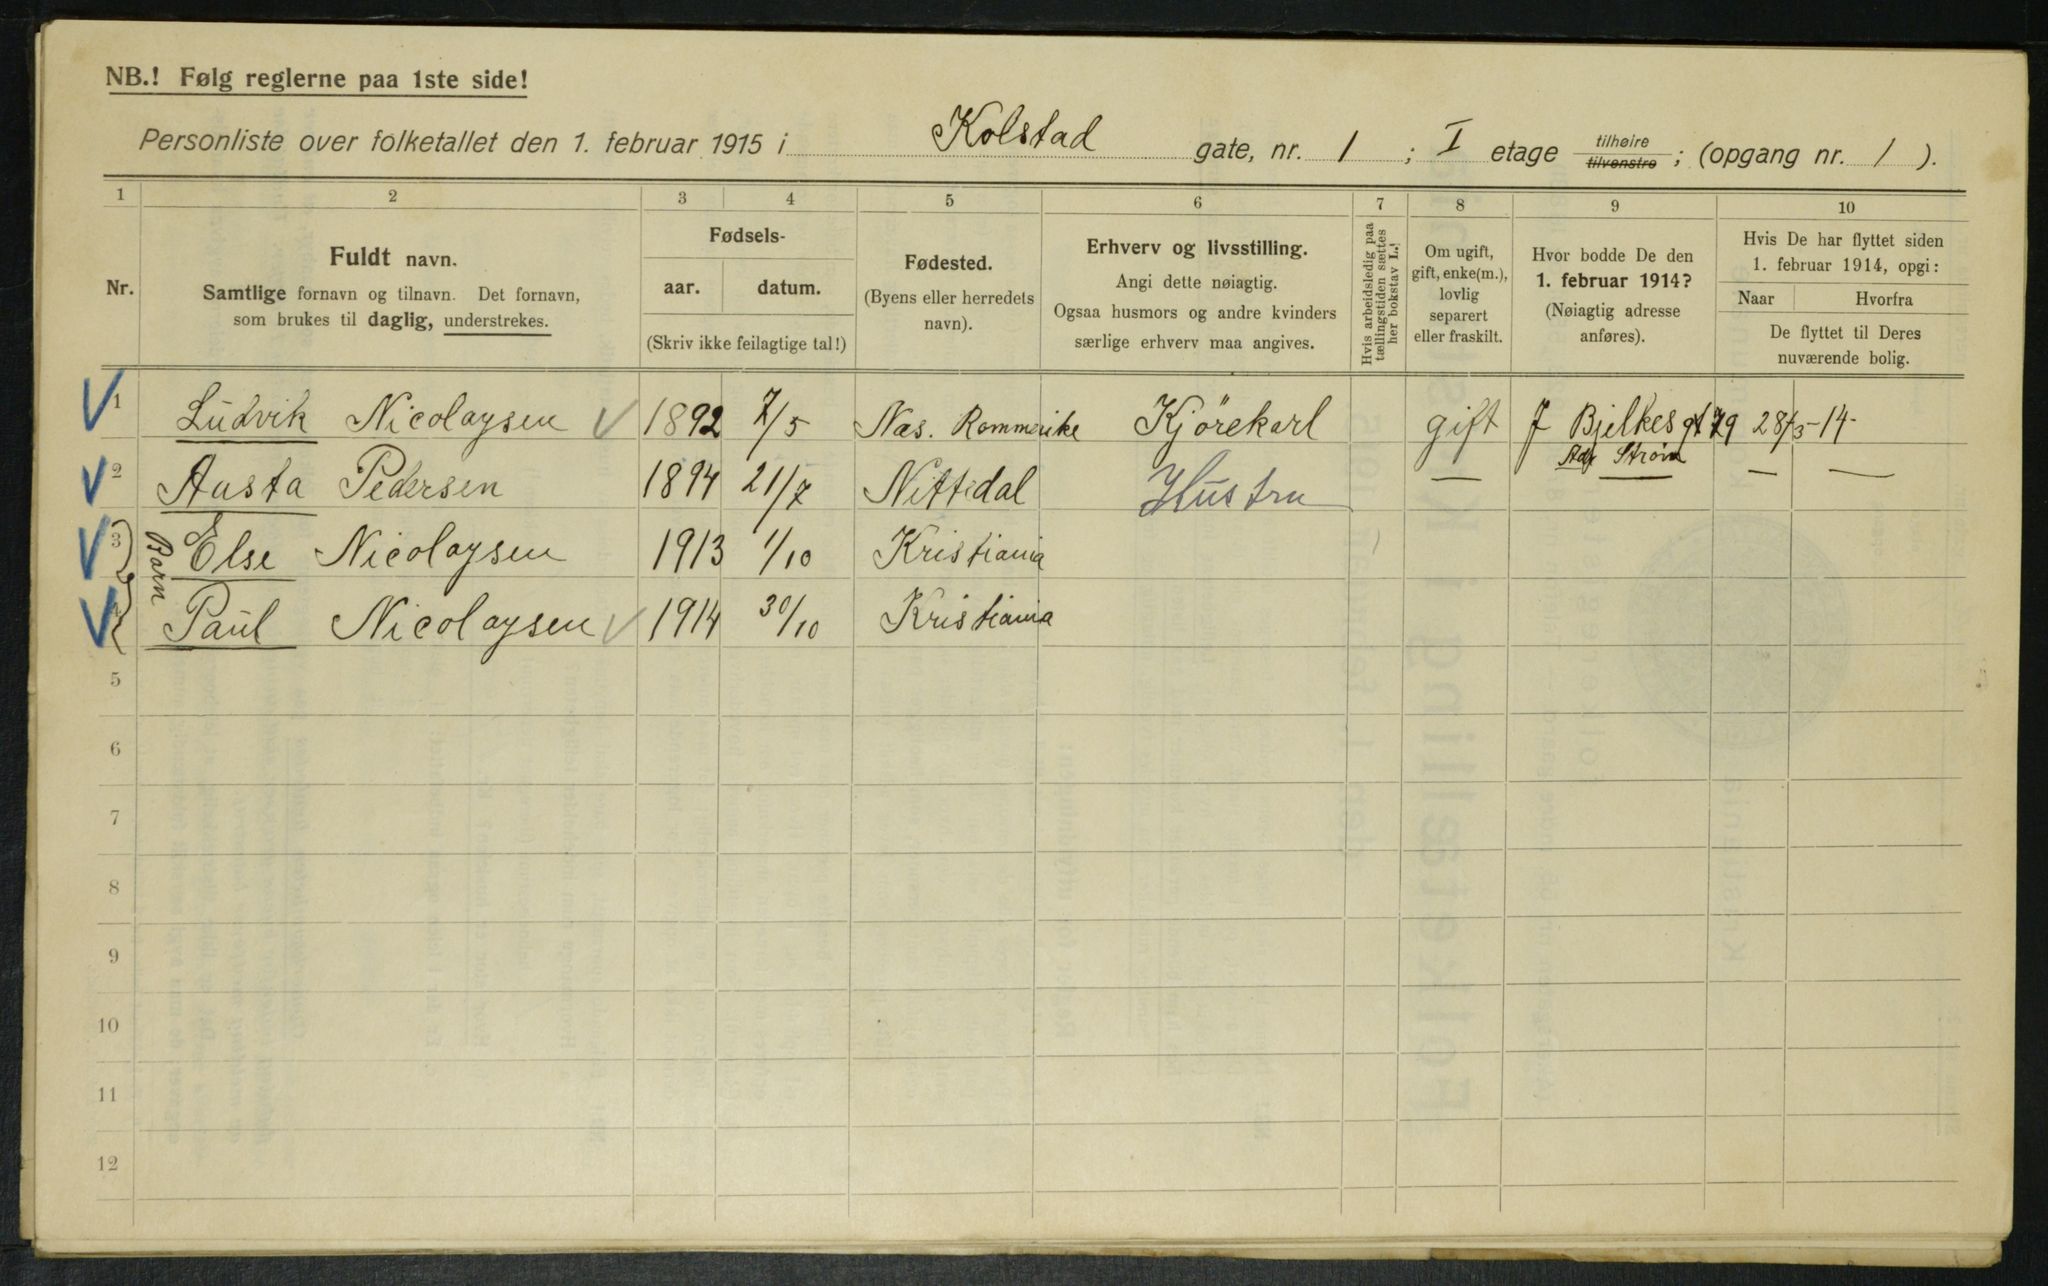 NB.! Følg reglerne paa 1ste side!
Personliste over folketallet den 1. februar 1915 i Kolstad gate, nr. 1 ; I etage tilhøire tilvenstre ; (opgang nr. 1 ).
1 2 3 4 5 6 7 8 9 10
Nr.
Fuldt navn.
Samtlige fornavn og tilnavn. Det fornavn,
som brukes til daglig, understrekes.
Fødsels-
aar. datum.
(Skriv ikke feilagtige tal!)
Fødested.
(Byens eller herredets
navn).
Erhverv og livsstilling.
Angi dette nøiagtig.
Ogsaa husmors og andre kvinders
særlige erhverv maa angives.
Hvis arbeidsledig paa
tællingstiden sættes
her bokstav L.
Om ugift,
gift, enke(m.),
lovlig
separert
eller fraskilt.
Hvor bodde De den
1. februar 1914?
(Nøiagtig adresse
anføres).
Hvis De har flyttet siden
1. februar 1914, opgi:
Naar Hvorfra
De flyttet til Deres
nuværende bolig.
1 Ludvik Nicolaysen 1892 7/5 Næs. Rommerike Kjörekarl gift J Bjelkes gt 79 28/3-14-
Adr Strøm
2 Aasta Pedersen 1894 21/7 Nittedal Hustru — — — —
Barn
3 Else Nicolaysen 1913 1/10 Kristiania
4 Paul Nicolaysen 1914 30/10 Kristiania
5
6
7
8
9
10
11
12